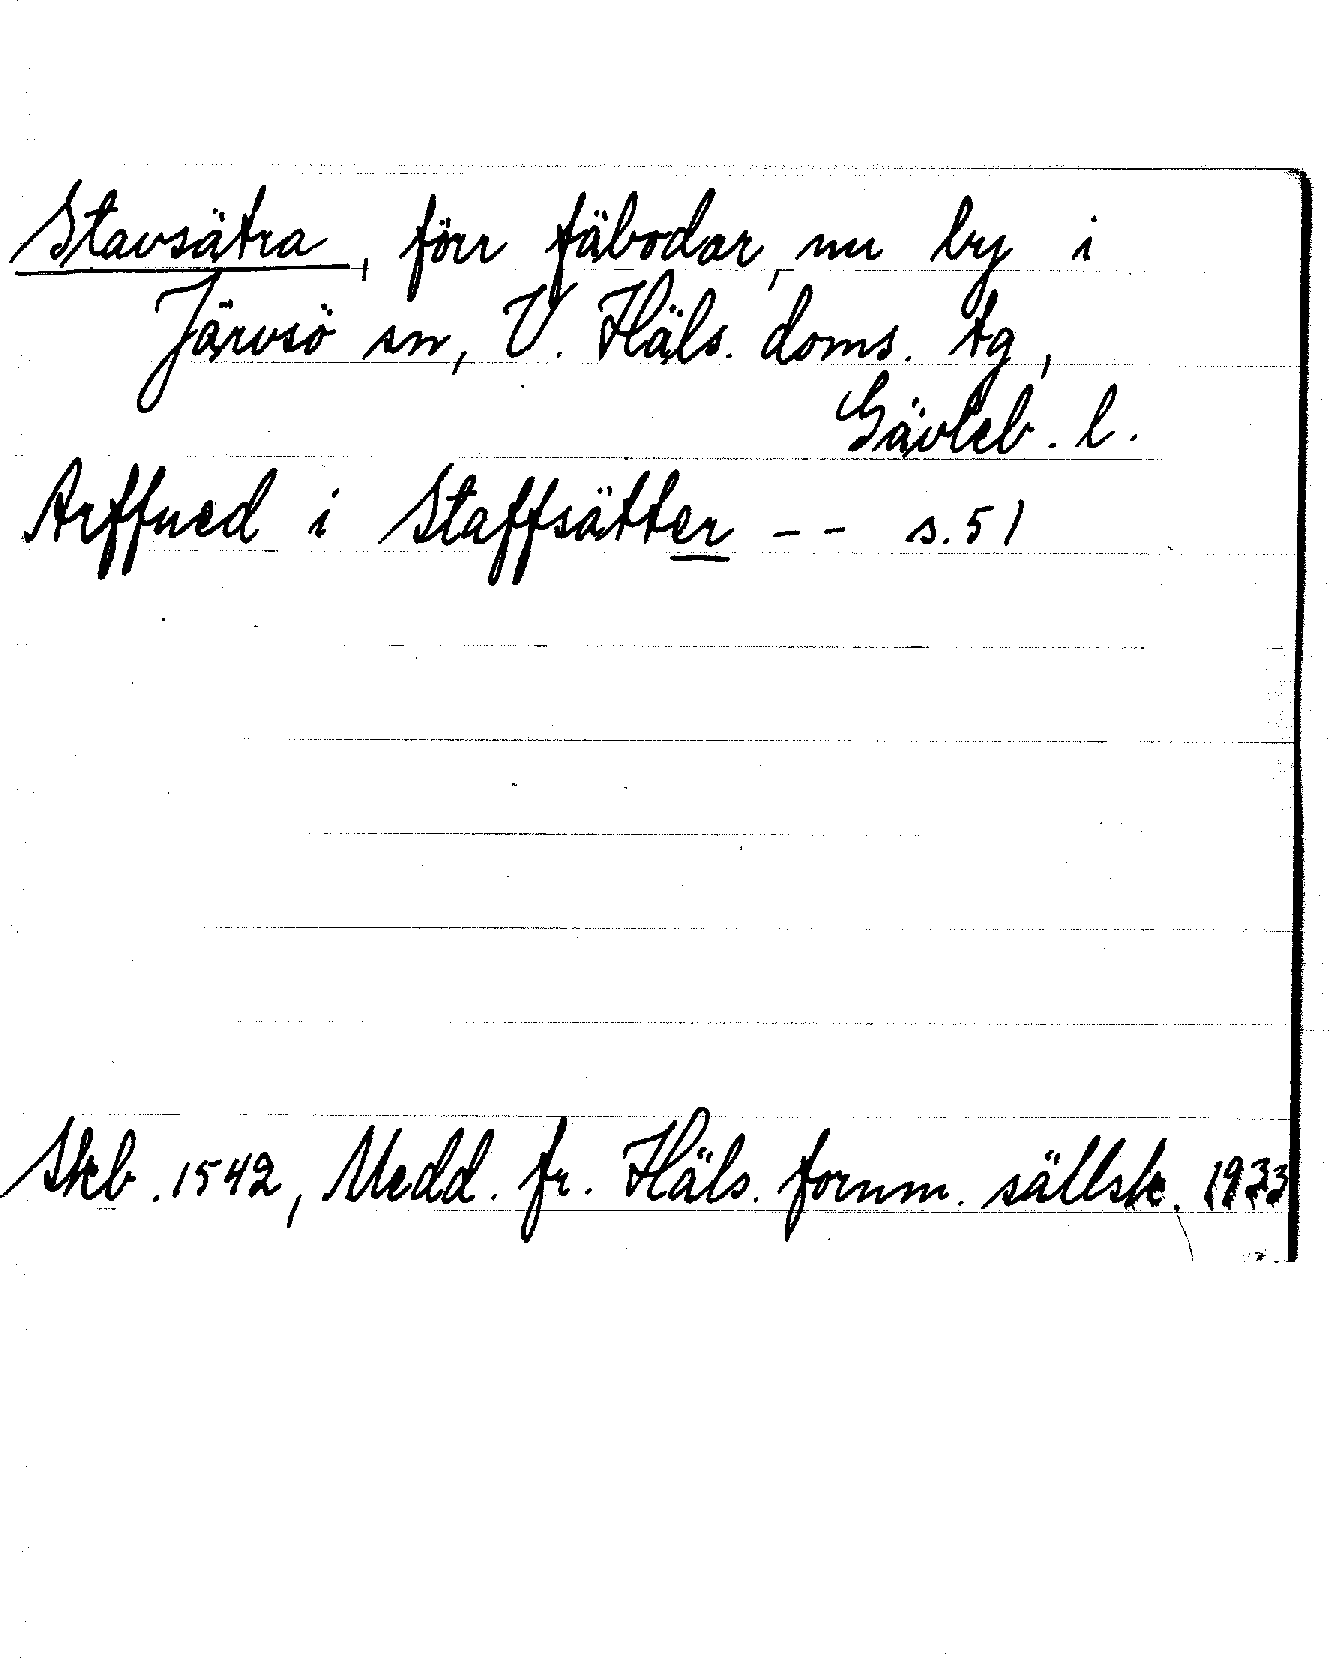 Stavsätra, förr fäbodar, nu by i
Järvsö sn, V. Häls. doms. tg,
Gävleb. l.
Arffued i Staffsätter -- s. 51
Skb. 1542, Medd. fr. Häls. fornm. sällsk. 1933